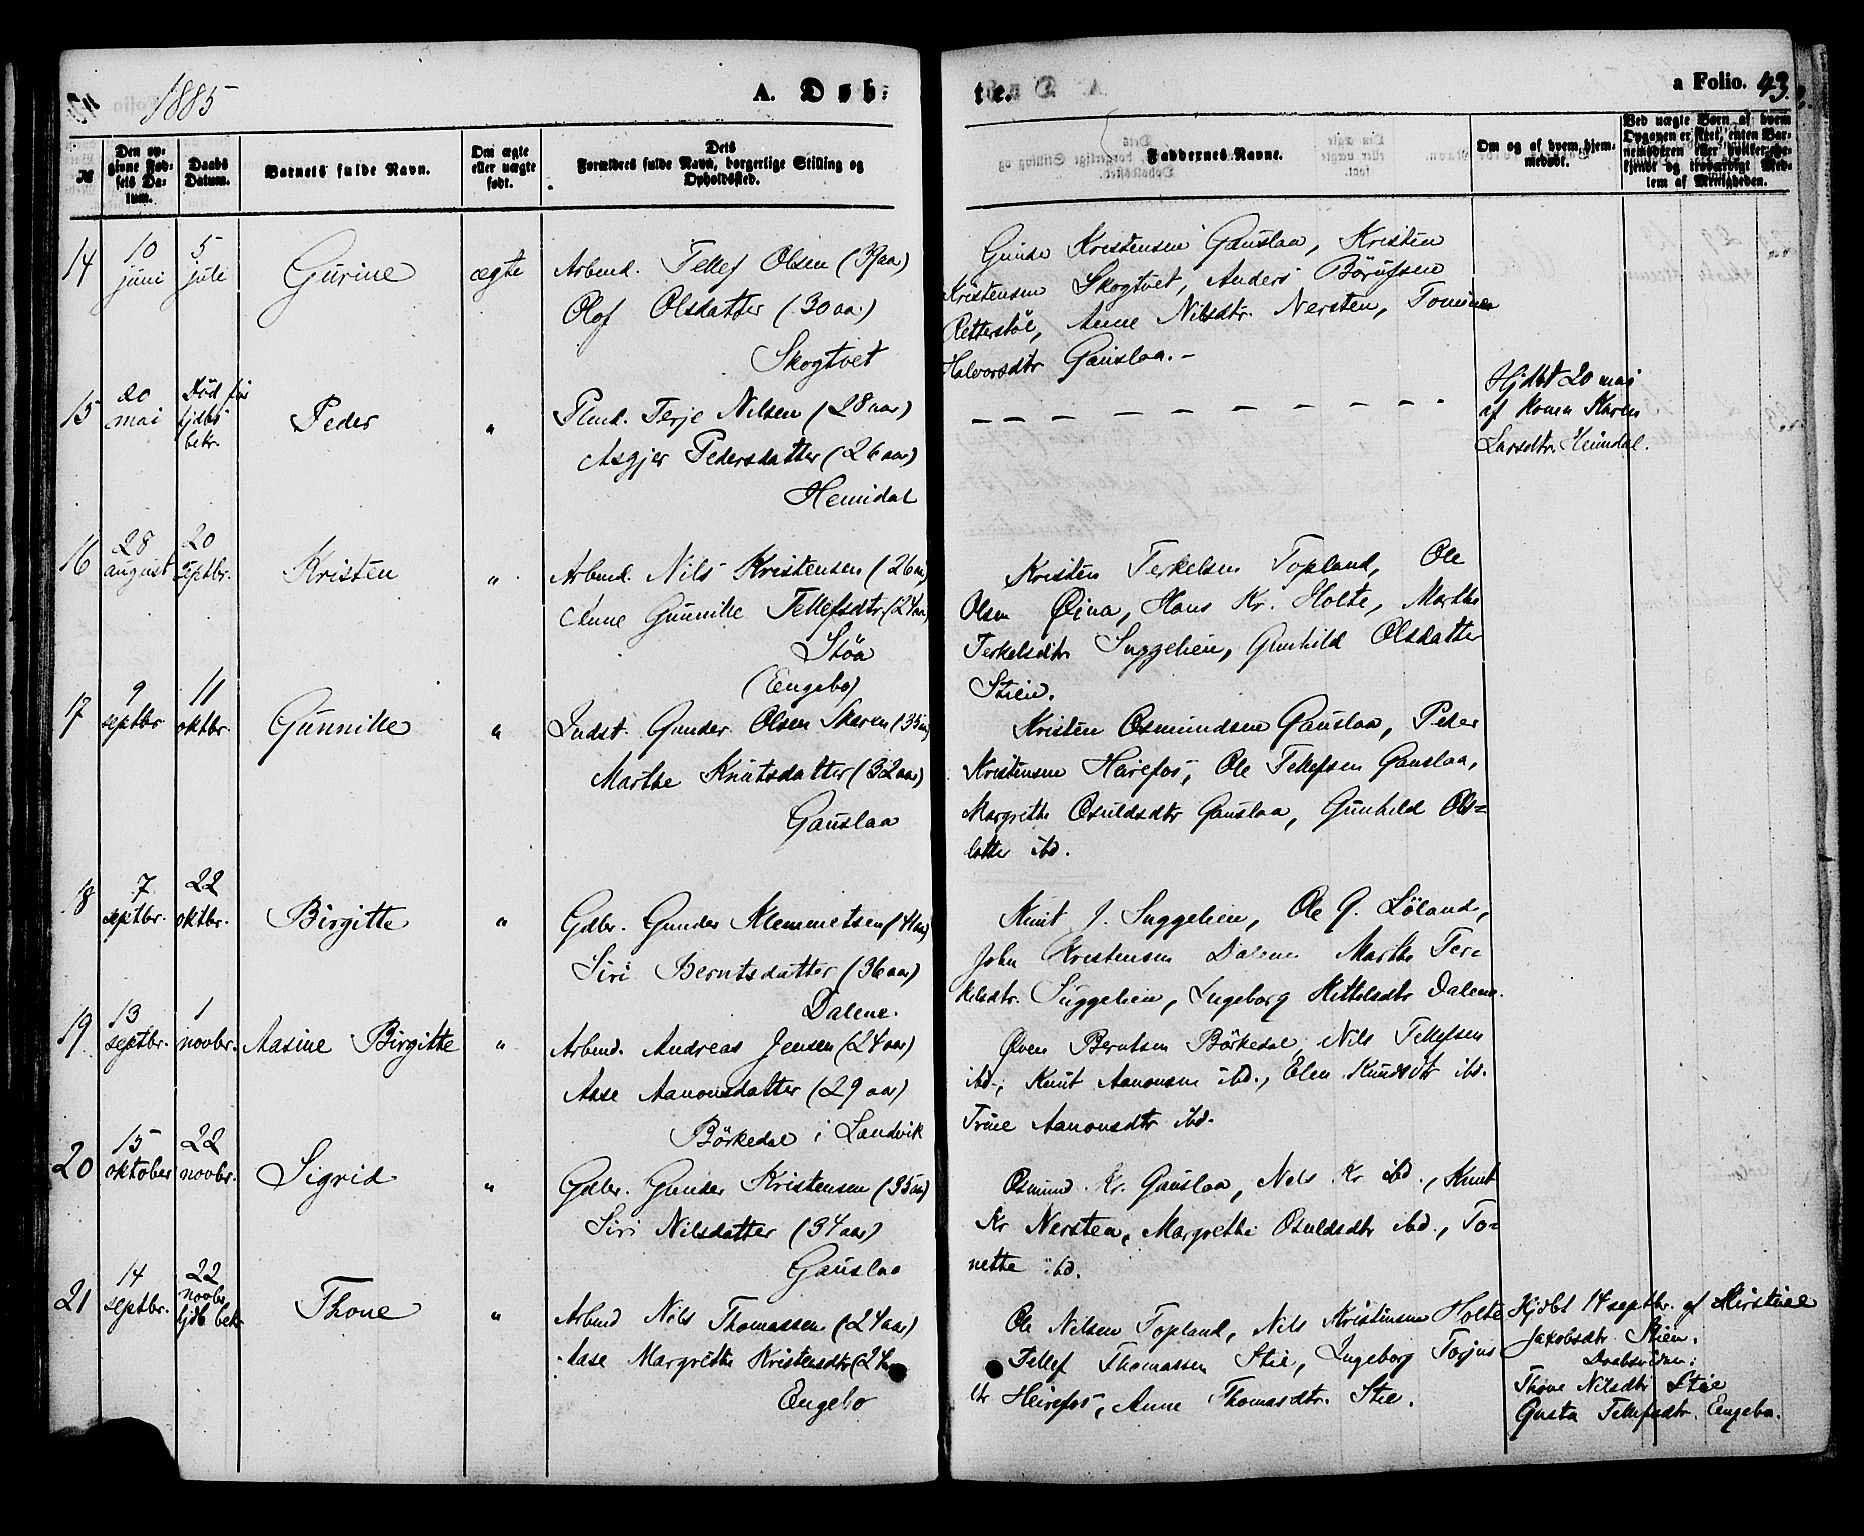 1885
A. Døb-
te.
a Folio. 43.
№
Den opgivne Fødsels Datum.
Daabs Datum.
Barnets fulde Navn.
Om ægte eller uægte født.
Dets Forældres fulde Navn, borgerlige Stilling og Opholdssted.
Faddernes Navne.
Om og af hvem hjemmedøbt.
14
10 juni
5 juli
Gurine
ægte
Arbmd. Tellef Olsen (37aa)
Olof Olsdatter (30aa)
Skogtvet
Kristensen Gauslaa, Kristen
Kristensen Skogtvet, Anders
Anne Nilsdtr. Nersten,
Halvorsdtr Gauslaa. –
15
20 mai
Død før hjdbs bekr.
Peder
"
Terje Nilsen (28aar)
Asgjer Pedersdatter (26aar)
Heimdal
— — — — — — — — — —
Hjdbt 20 mai
af konen Karen
Larsdtr. Heimdal.
16
28 august
20 septbr.
Kristen
"
Arbmd. Nils Kristensen (26aa)
Anne Gunnilde Tellefsdtr (24aa)
Støa
(Engebo)
Kristen Terkelsen Topland, Ole
Olsen Øina, Hans Kr. Holte, Marthe
Terkelsdtr Suggelien, Gunhild Olsdatter
Stien.
17
9 septbr
11 oktbr.
Gunnilde
"
Indst. Gunder Olsen Skeren (35aa)
Marthe Knutsdatter (32aar)
Gauslaa
Kristen Osmundsen Gauslaa, Peder
Kristensen Heirefos, Ole Tellefsen Gauslaa,
Margrethe Osuldsdtr Gauslaa, Gunhild Ols=
datter ibd.
18
7 septbr.
22 oktbr.
Birgitte
"
Gdbr. Gunder Klemmetsen (41aa)
Siri Berntsdatter (36aar)
Dalene.
Knut J. Suggelien, Ole G. Løland,
John Kristensen Dalene Marthe Ter=
kelsdtr. Suggelien, Ingeborg Kittelsdtr Dalene.
19
13 septbr.
1 novbr.
Aasine Birgitte
"
Arbmd. Andreas Jensen (24aar)
Aase Aanonsdatter (29 aar)
Börkedal i Landvik
Øven Berntsen Börkedal, Nils Tellefsen
ibd., Knut Aanonsen ibd., Elen Knudsdtr ibd.
Trine Aanonsdtr ibd.
20
15 oktober
22 novbr.
Sigrid
"
Gdbr. Gunder Kristensen (35aa)
Siri Nilsdatter (34aar)
Gauslaa
Osmund Kr. Gauslaa, Nels Kr ibd., Knut
Kr Nersten, Margrethe Osuldsdtr ibd., To=
nette ibd.
21
14 septbr.
22 novbr. hjdb bekr.
Thone
"
Arbmd Nels Thomassen (24aar)
Aase Margrethe Kristensdtr (24
Engebo
Ole Nilsen Topland, Nils Kristensen Holte
Tellef Thomassen Stie, Ingeborg Torjus
dtr Heirefos, Anne Thomasdtr. Stie.
Hjdbt 14 septbr. af Kirstine
Jakobsdtr Stien.
Daabsvidner:
Thone Nilsdtr Stie
Gusta Tellefsdtr. Engebo.